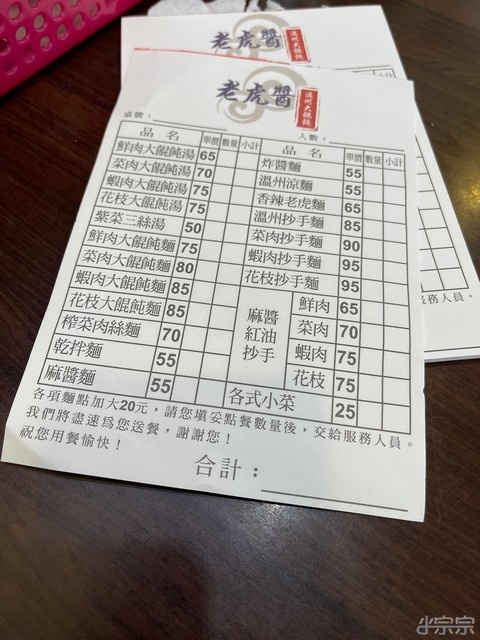 老虎醬
溫州大餛飩
老虎醬
溫州大餛飩
桌號：
人數：
品名 單價 數量 小計
鮮肉大餛飩湯 65
菜肉大餛飩湯 70
蝦肉大餛飩湯 75
花枝大餛飩湯 75
紫菜三絲湯 50
鮮肉大餛飩麵 75
菜肉大餛飩麵 80
蝦肉大餛飩麵 85
花枝大餛飩麵 85
榨菜肉絲麵 70
乾拌麵 55
麻醬麵 55
品名 單價 數量 小計
炸醬麵 55
溫州涼麵 55
香辣老虎麵 65
溫州抄手麵 85
菜肉抄手麵 90
蝦肉抄手麵 95
花枝抄手麵 95
麻醬
紅油
抄手
鮮肉 65
菜肉 70
蝦肉 75
花枝 75
各式小菜 25
各項麵點加大20元，請您填妥點餐數量後，交給服務人員。
我們將盡速為您送餐，謝謝您！
祝您用餐愉快！
合計：
服務人員。
小宗宗